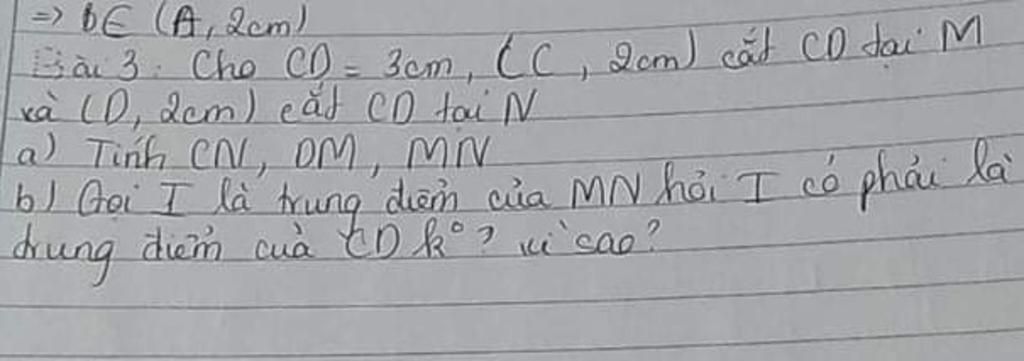 => b∈ (A, 2cm)
Bài 3: Cho CD = 3cm, (C, 2cm) cắt CD tại M
và (D, 2cm) cắt CD tại N
a) Tính CN, DM, MN
b) Gọi I là trung điểm của MN hỏi I có phải là
trung điểm của CD k°? vì sao?